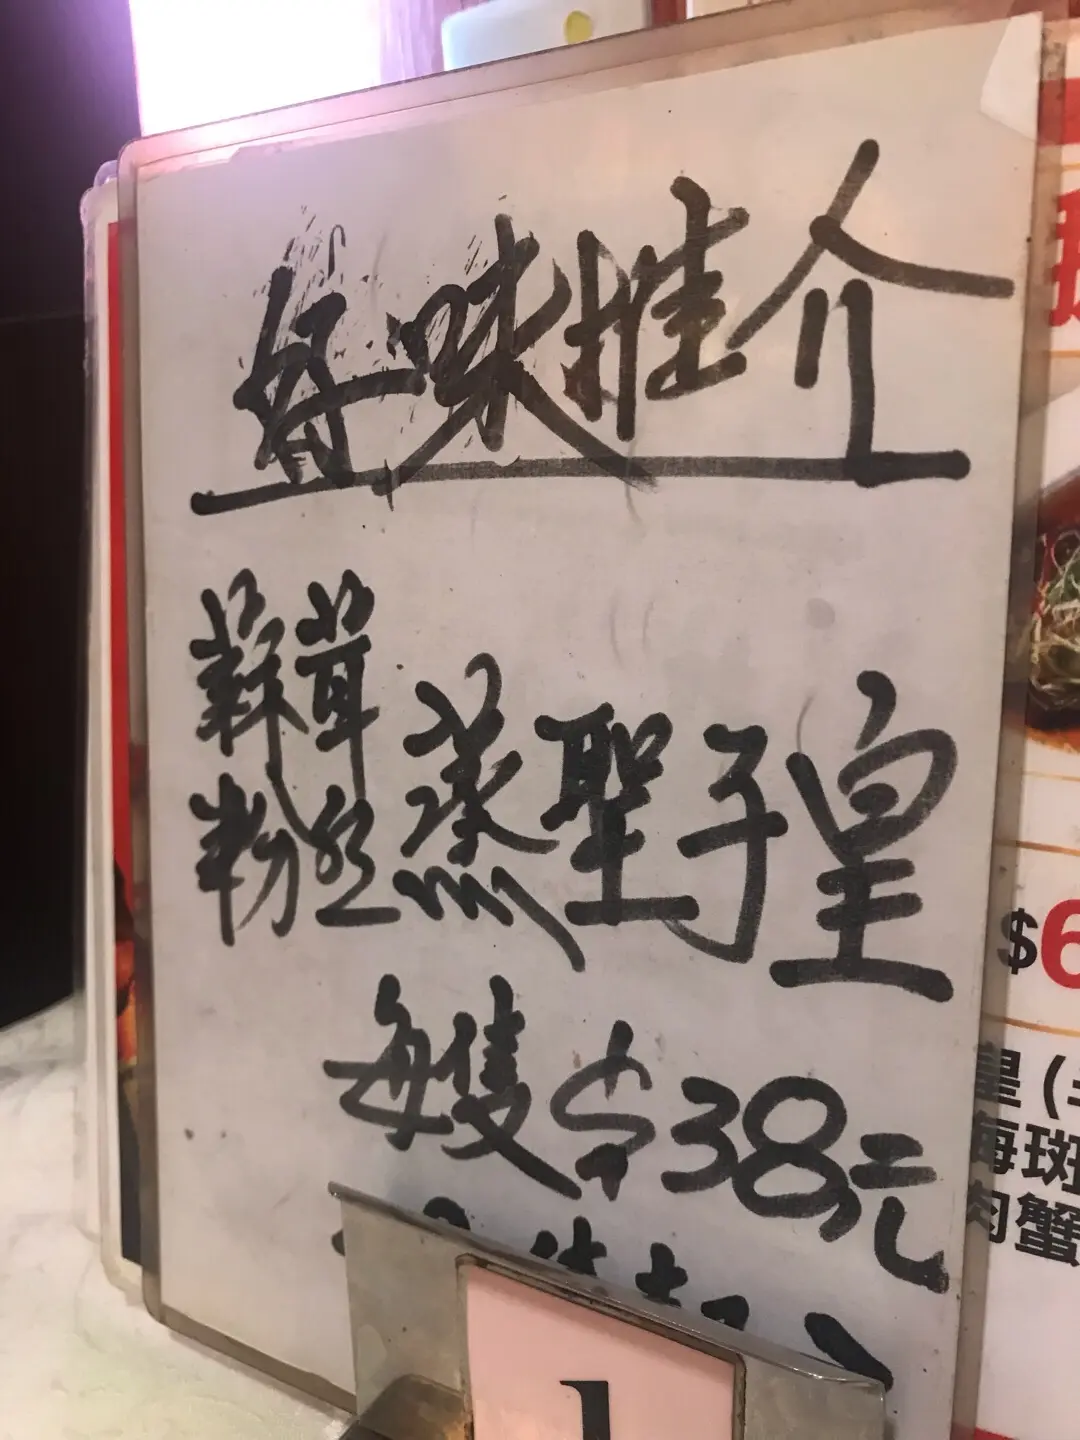 好味推介
蒜茸
粉丝蒸聖子皇
每隻$38元
$6
皇(
海斑
肉蟹
1